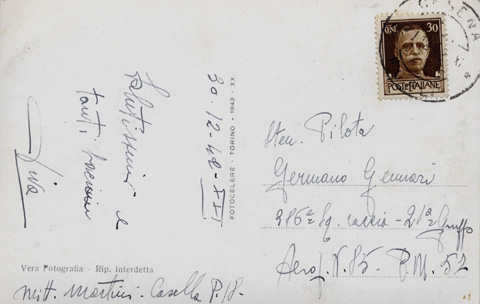 CESENA
CENT 30
POSTE ITALIANE
30-12-42-XXI
Salutissimi e
tanti bacioni
FOTOCELERE - TORINO - 1942 - XX
Sten. Pilota
Germano Gennari
386ª Sq. caccia - 21º Gruppo
Aerop. N. 85. P.M. 52
Vera Fotografia - Rip. interdetta
Mitt. Martini - Casella P. 18-